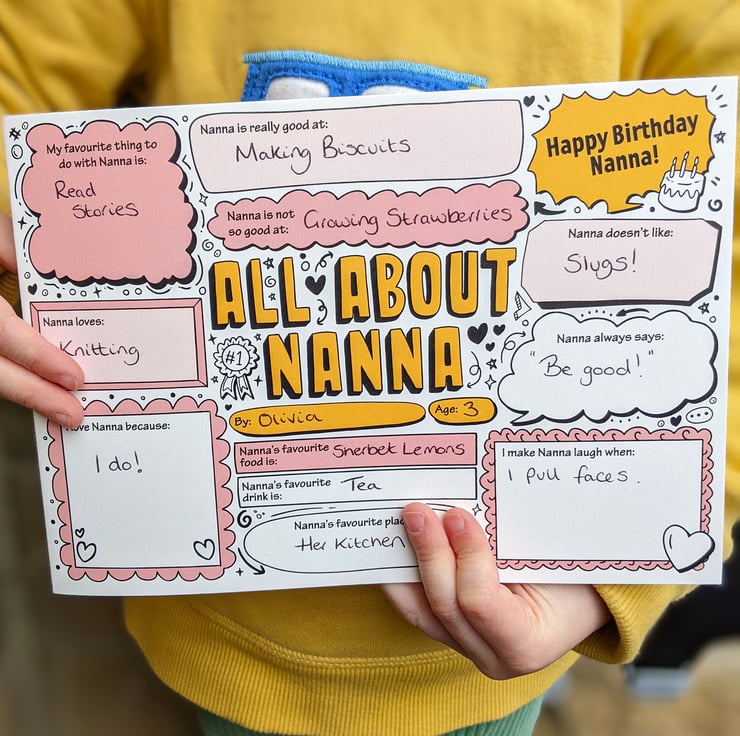 My favourite thing to
do with Nanna is:
Read
Stories
Nanna is really good at:
Making Biscuits
Happy Birthday
Nanna!
Nanna is not
so good at: Growing Strawberries
Nanna doesn't like:
Slugs!
ALL ABOUT
NANNA
#1
Nanna loves:
Knitting
Nanna always says:
"Be good!"
By: Olivia
Age: 3
love Nanna because:
I do!
Nanna's favourite
food is: Sherbet Lemons
Nanna's favourite
drink is: Tea
Nanna's favourite
Her Kitchen
I make Nanna laugh when:
I pull faces.